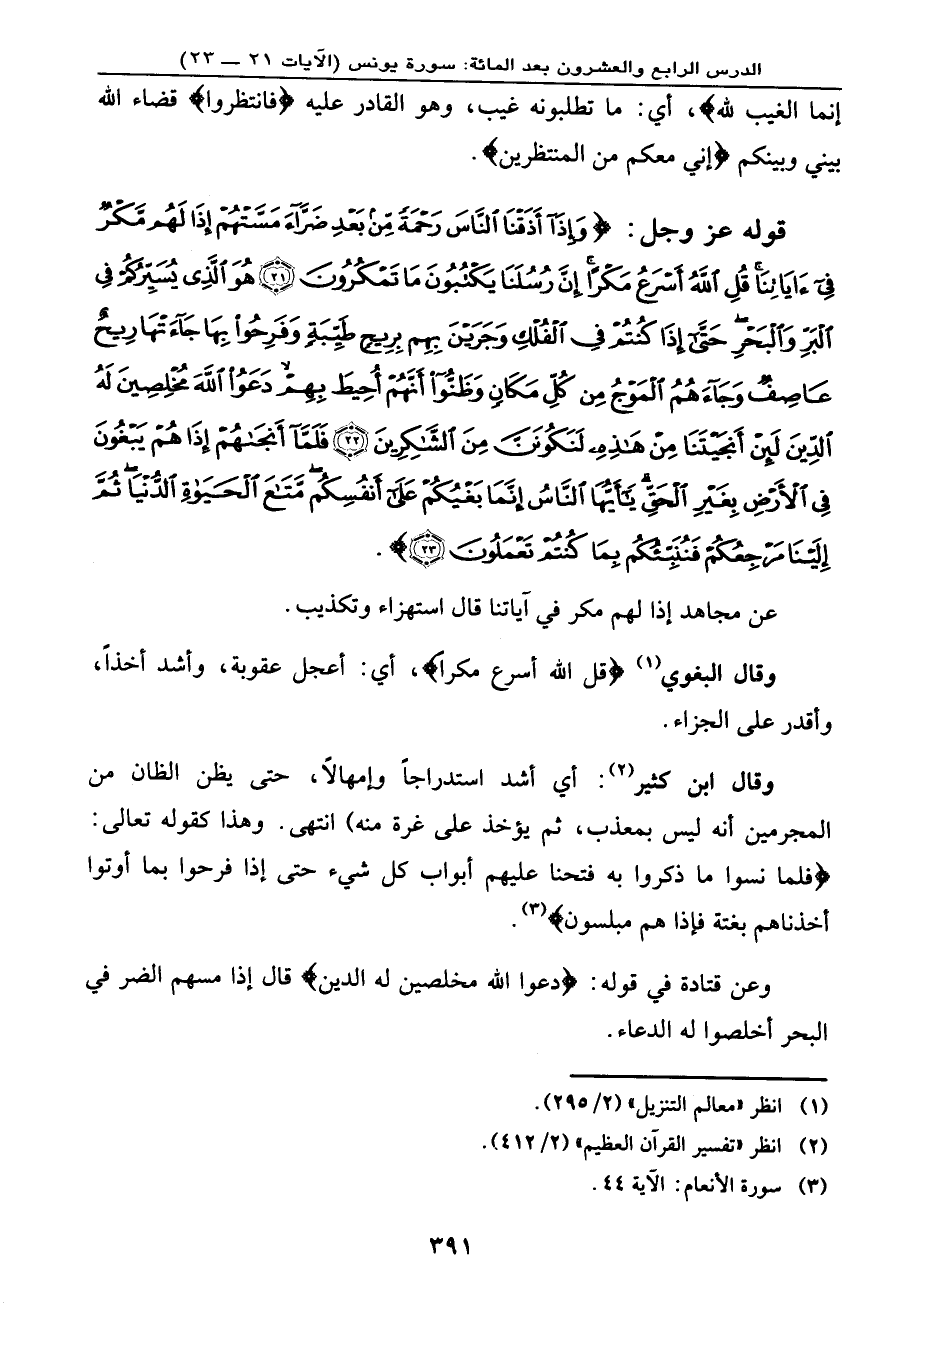 الدرس الرابع والعشرون بعد المائة: سورة يونس (الآيات ٢١ ــ ٢٣)
إنما الغيب لله﴾، أي: ما تطلبونه غيب، وهو القادر عليه ﴿فانتظروا﴾ قضاء الله
بيني وبينكم ﴿إني معكم من المنتظرين﴾.
قوله عز وجل: ﴿وَإِذَآ أَذَقْنَا ٱلنَّاسَ رَحْمَةً مِّنۢ بَعْدِ ضَرَّآءَ مَسَّتْهُمْ إِذَا لَهُم مَّكْرٌ
فِىٓ ءَايَاتِنَا ۚ قُلِ ٱللَّهُ أَسْرَعُ مَكْرًا ۚ إِنَّ رُسُلَنَا يَكْتُبُونَ مَا تَمْكُرُونَ ٢١ هُوَ ٱلَّذِى يُسَيِّرُكُمْ فِى
ٱلْبَرِّ وَٱلْبَحْرِ ۖ حَتَّىٰٓ إِذَا كُنتُمْ فِى ٱلْفُلْكِ وَجَرَيْنَ بِهِم بِرِيحٍ طَيِّبَةٍ وَفَرِحُوا۟ بِهَا جَآءَتْهَا رِيحٌ
عَاصِفٌ وَجَآءَهُمُ ٱلْمَوْجُ مِن كُلِّ مَكَانٍ وَظَنُّوٓا۟ أَنَّهُمْ أُحِيطَ بِهِمْ ۙ دَعَوُا۟ ٱللَّهَ مُخْلِصِينَ لَهُ
ٱلدِّينَ لَئِنْ أَنجَيْتَنَا مِنْ هَـٰذِهِۦ لَنَكُونَنَّ مِنَ ٱلشَّـٰكِرِينَ ٢٢ فَلَمَّآ أَنجَىٰهُمْ إِذَا هُمْ يَبْغُونَ
فِى ٱلْأَرْضِ بِغَيْرِ ٱلْحَقِّ ۗ يَـٰٓأَيُّهَا ٱلنَّاسُ إِنَّمَا بَغْيُكُمْ عَلَىٰٓ أَنفُسِكُم ۖ مَّتَـٰعَ ٱلْحَيَوٰةِ ٱلدُّنْيَا ۖ ثُمَّ
إِلَيْنَا مَرْجِعُكُمْ فَنُنَبِّئُكُم بِمَا كُنتُمْ تَعْمَلُونَ ٢٣﴾.
عن مجاهد إذا لهم مكر في آياتنا قال استهزاء وتكذيب.
وقال البغوي(١) ﴿قل الله أسرع مكرا﴾، أي: أعجل عقوبة، وأشد أخذاً،
وأقدر على الجزاء.
وقال ابن كثير(٢): أي أشد استدراجاً وإمهالاً، حتى يظن الظان من
المجرمين أنه ليس بمعذب، ثم يؤخذ على غرة منه) انتهى. وهذا كقوله تعالى:
﴿فلما نسوا ما ذكروا به فتحنا عليهم أبواب كل شيء حتى إذا فرحوا بما أوتوا
أخذناهم بغتة فإذا هم مبلسون﴾(٣).
وعن قتادة في قوله: ﴿دعوا الله مخلصين له الدين﴾ قال إذا مسهم الضر في
البحر أخلصوا له الدعاء.
(١) انظر «معالم التنزيل» (٢/ ٢٩٥).
(٢) انظر «تفسير القرآن العظيم» (٢/ ٤١٢).
(٣) سورة الأنعام: الآية ٤٤.
٣٩١